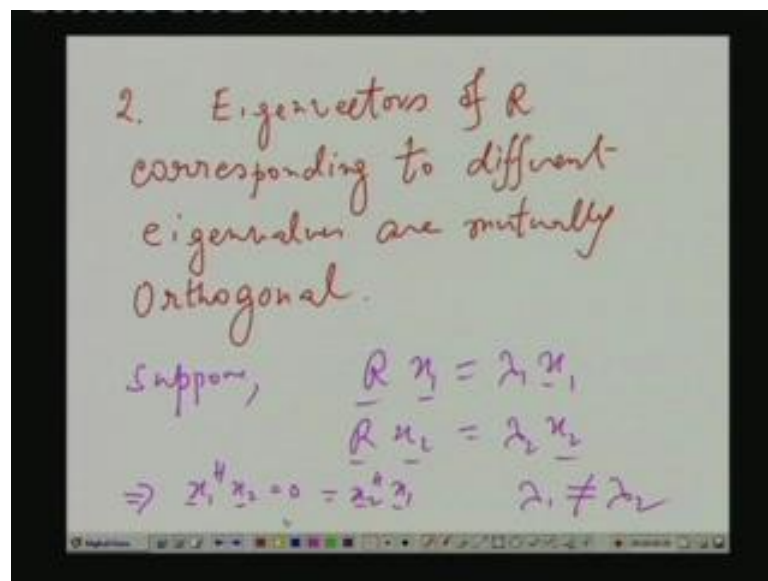 2. Eigenvectors of R
corresponding to different
eigenvalues are mutually
Orthogonal.
Suppose, R x₁ = λ₁ x₁
R x₂ = λ₂ x₂
⇒ x₁ᴴ x₂ = 0 = x₂ᴴ x₁ λ₁ ≠ λ₂